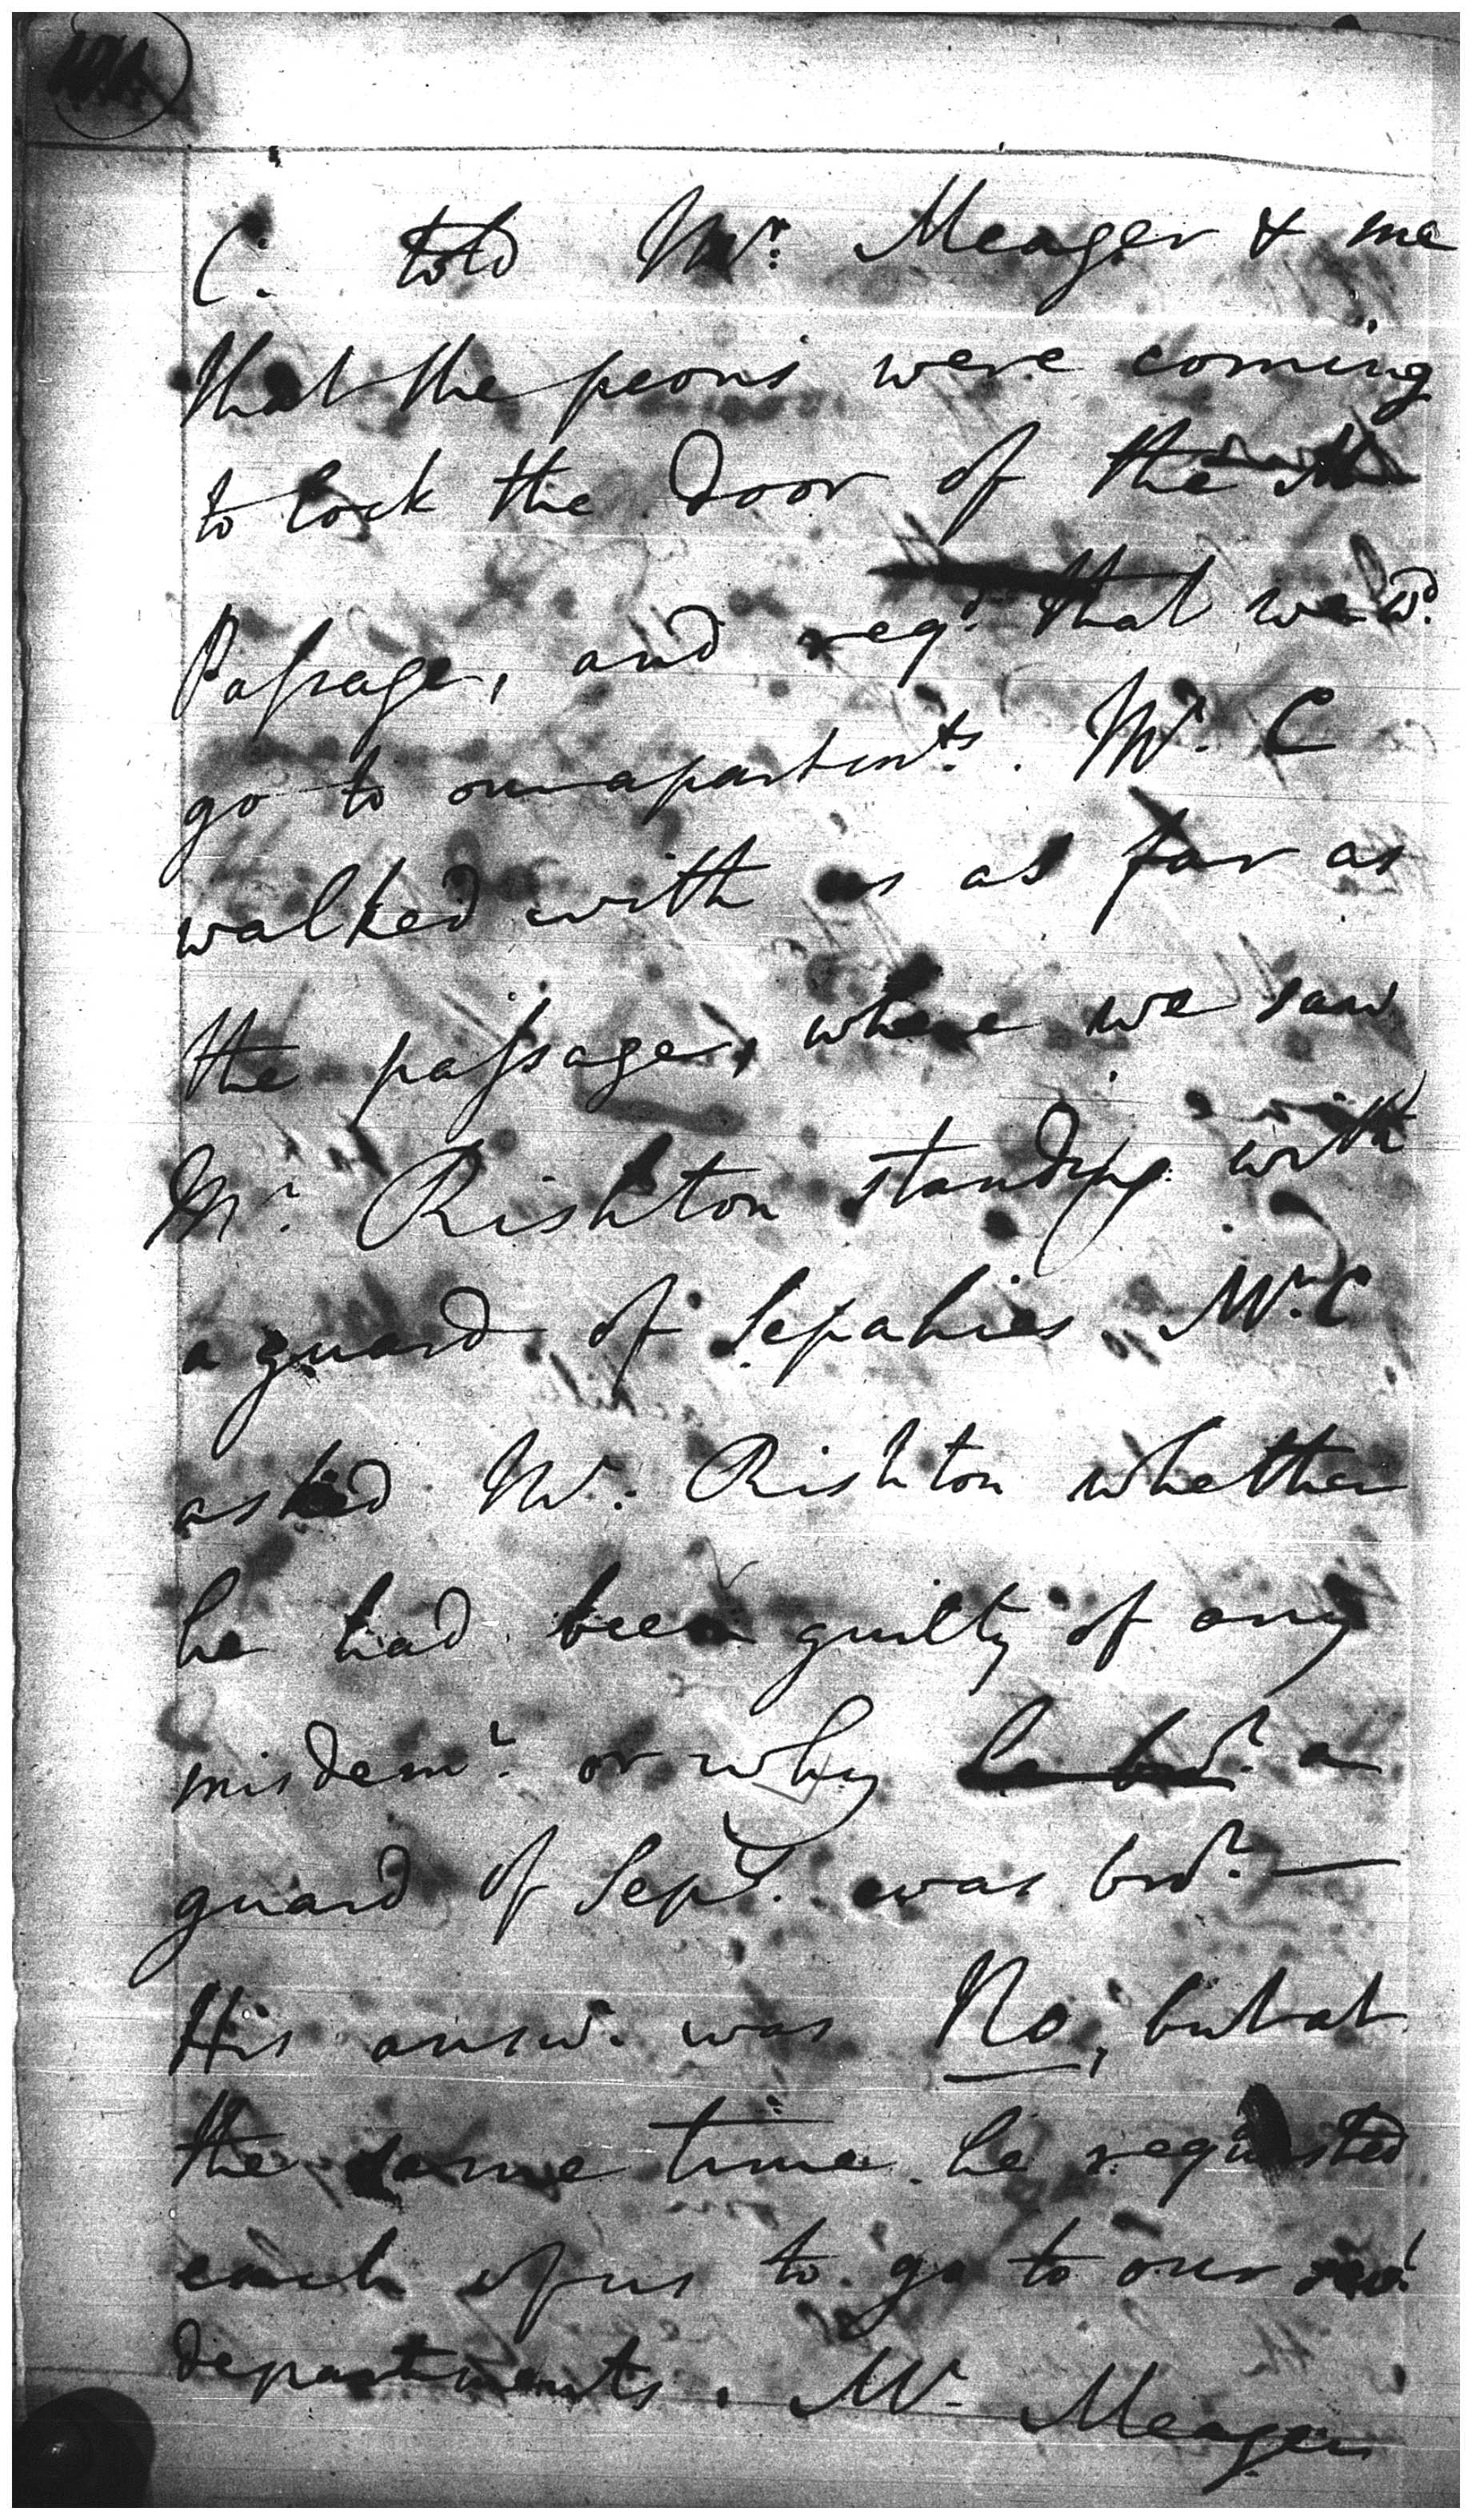 C. told Mr. Meager & me
that the peons were coming
to lock the door of the
Passage, and reqd. that we wd.
go to our apartmts. Mr. C
walked with us as far as
the passage, where we saw
Mr. Rishton standing with
a guard of Sepahies. Mr. C
asked Mr. Rishton whether
he had been guilty of any
misdemr. or why he brot. a
guard of Seps. was brot. —
His answr. was No, but at
the same time he requested
each of us to go to our
departments. Mr. Meager